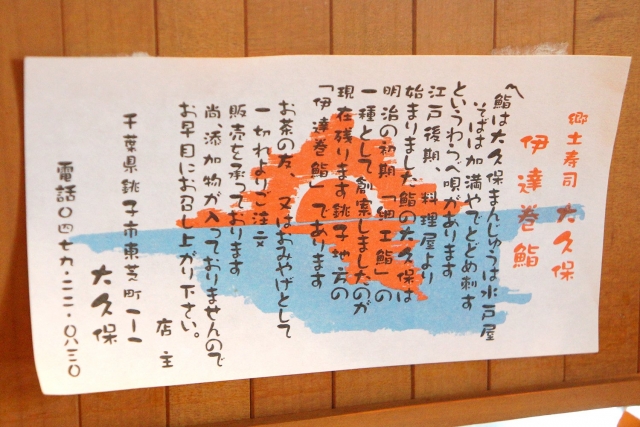 郷土寿司 大久保
伊達巻鮨
〽鮨は大久保まんじゅうは水戸屋
そばは加満やでとどめ刺す
というわらべ唄があります
江戸後期、料理屋より
始まりました鮨の大久保は
明治の初期「細工鮨」の
一種として創案しましたのが
現在残ります銚子地方の
「伊達巻鮨」であります
お茶の友、又はおみやげとして
一切れよりご注文
販売を承っております
尚添加物が入っておりませんので
お早目にお召し上がり下さい。
店主
千葉県銚子市東芝町一ー一
大久保
電話〇四七九・二二・〇八三〇